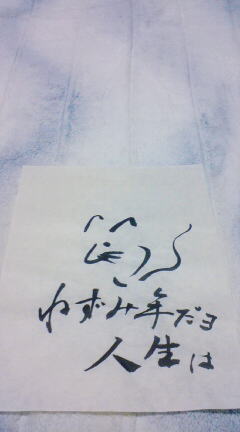 ねずみ年だョ
人生は